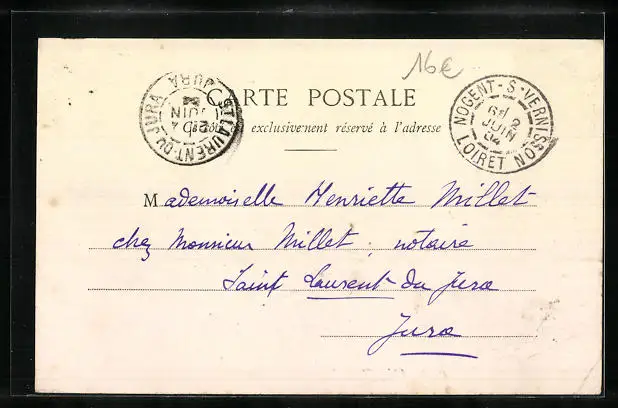 16€
CARTE POSTALE
Ce côté est exclusivement réservé à l'adresse
ST LAURENT-DU-JURA JURA
JUIN
NOGENT-S-VERNISSON LOIRET
6E 2
JUIN
04
Mademoiselle Henriette Millet
chez Monsieur Millet, notaire
Saint Laurent du Jura
Jura